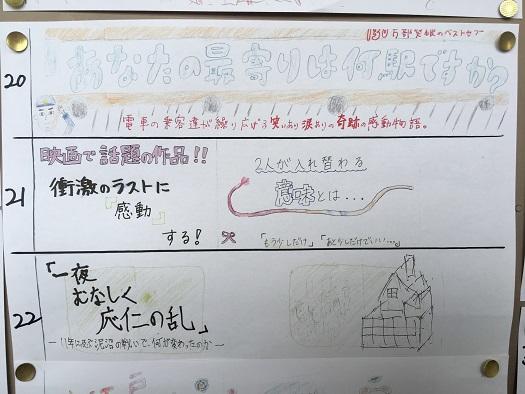 20
万部突破のベストセラー
あなたの最寄りは何駅ですか?
電車の乗客達が繰り広げる笑いあり涙ありの奇跡の感動物語。
21
映画で話題の作品!!
衝激のラストに
「感動」
する!
2人が入れ替わる
意味とは・・・
「もう少しだけ」「あと少しだけでいい・・・。」
22
「一夜
むなしく
応仁の乱」
―11年に及ぶ泥沼の戦いで、何が変わったのか―